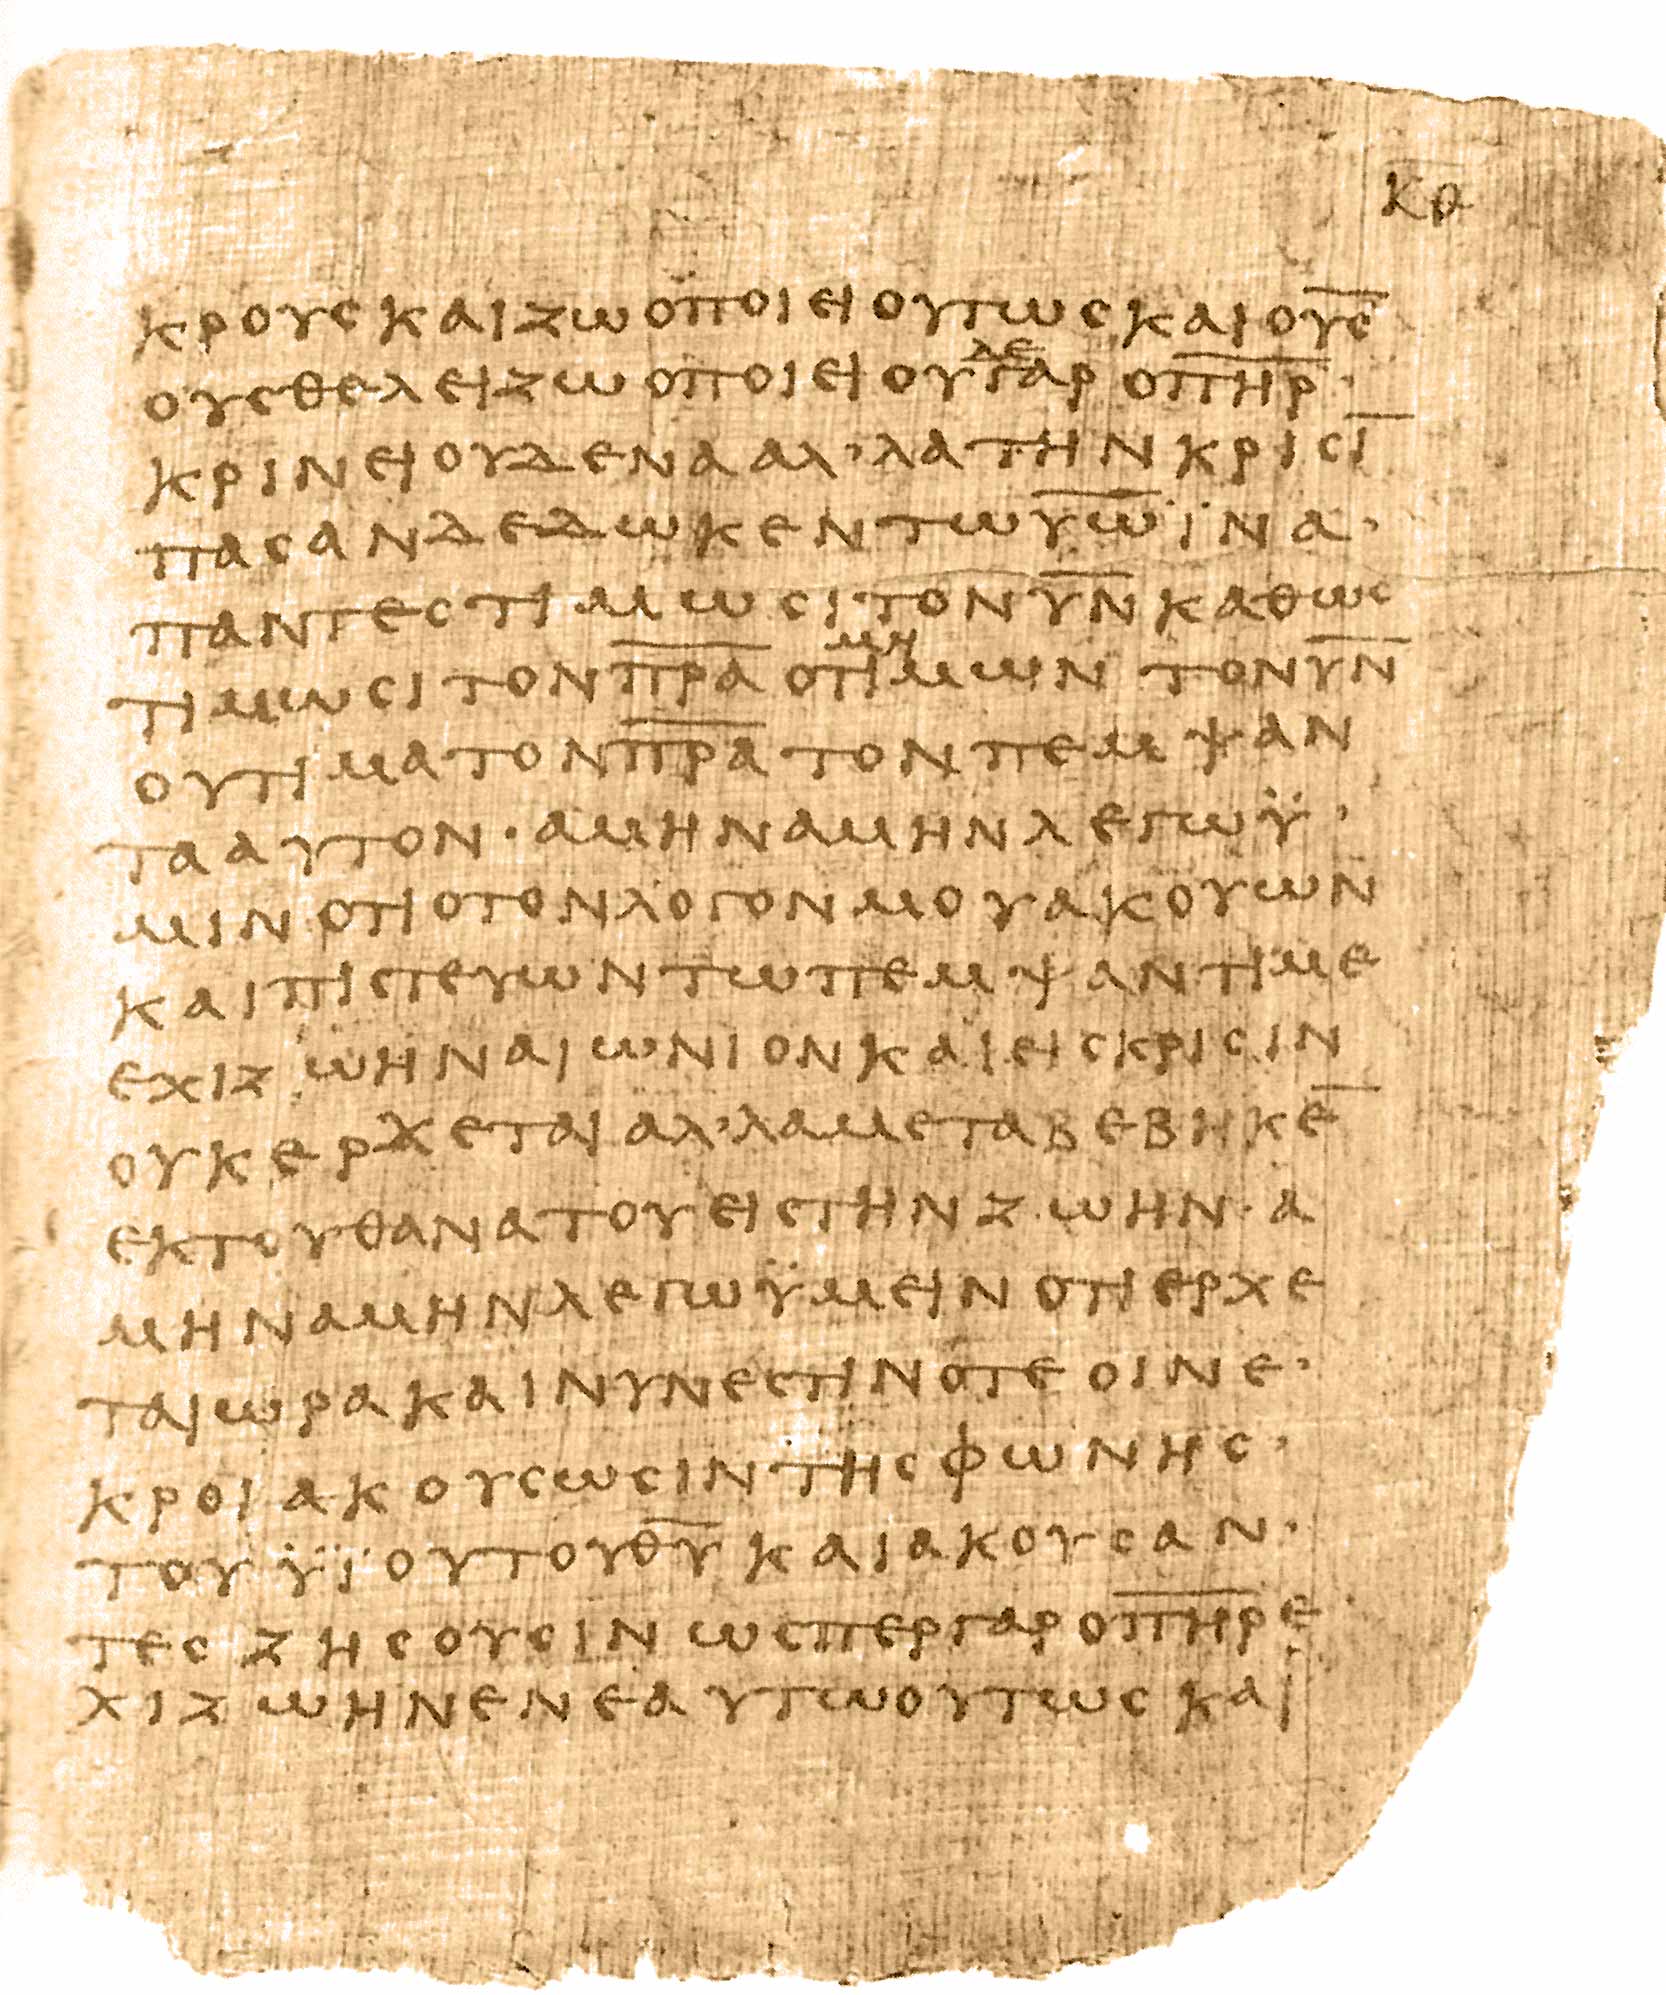 κθ
κρουςκαιζωοποιειουτωςκαιου̅ς̅
ουςθελειζωοποιειου`δε´γαρ οπ̅η̅ρ̅·
κρινειουδενααλ’λατηνκριςι̅
παςανδεδωκεντωυ̅ω̅ϊνα·
παντεςτιμωςι·τονυ̅ν̅καθως
τιμωςιτονπ̅ρ̅α̅ ο`μη´τιμων τονυ̅ν̅
ουτιματονπ̅ρ̅α̅ τονπεμψαν
τααυτον·αμηναμηνλεγωϋ·
μιν οτιοτονλογονμουακουων
καιπιςτευωντωπεμψαντιμε
εχιζωηναιωνιονκαιειςκριςιν
ουκερχεταιαλ’λαμεταβεβηκε̅
εκτουθανατουειςτηνζωην·α
μηναμηνλεγωϋμεινοτιερχε
ταιωρακαινυνεςτινοτεοινε·
κροιακουςωςιντηςφωνης·
τουϋϊουτουθ̅υ̅καιακουςαν·
τεςζηςουςινωςπεργαροπ̅η̅ρ̅ε
χιζωηνενεαυτωουτωςκαι